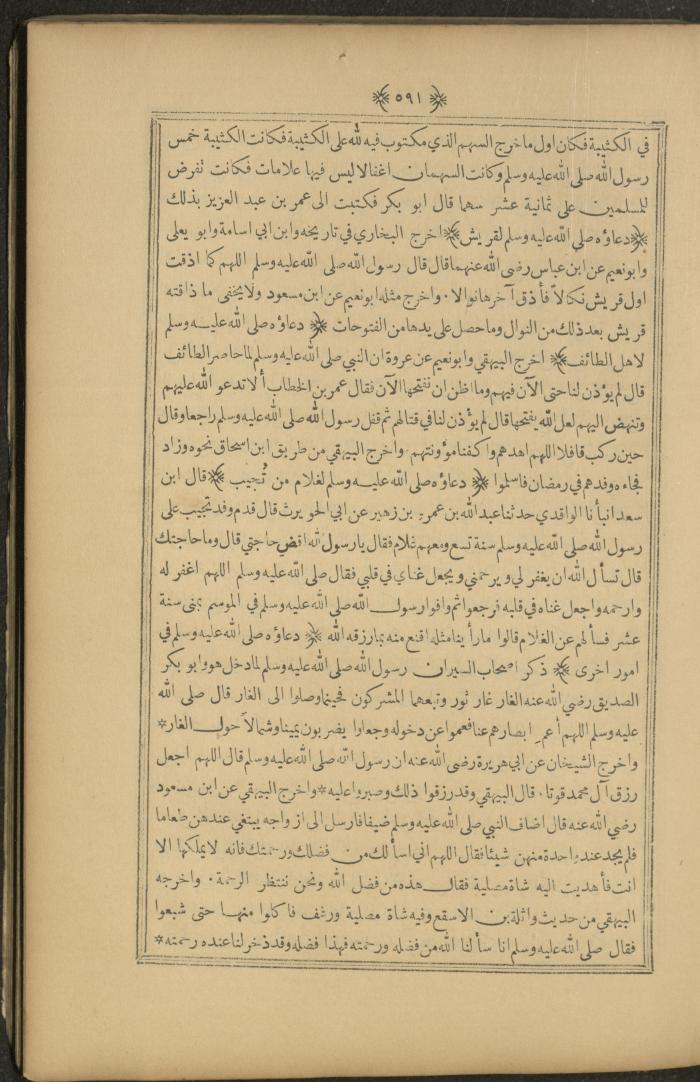 ﴿ ٥٩١ ﴾
في الكثيبة فكان اول ما خرج السهم الذي مكتوب فيه لله على الكثيبة فكانت الكثيبة خمس
رسول الله صلى الله عليه وسلم وكانت السهمان اغفالا ليس فيها علامات فكانت تفرض
للمسلمين على ثمانية عشر سهما قال ابو بكر فكتبت الى عمر بن عبد العزيز بذلك
﴿دعاؤه صلى الله عليه وسلم لقريش﴾ اخرج البخاري في تاريخه وابن ابي اسامة وابو يعلى
وابو نعيم عن ابن عباس رضى الله عنهما قال قال رسول الله صلى الله عليه وسلم اللهم كما اذقت
اول قريش نكالاً فأذق آخرها نوالا · واخرج مثله ابو نعيم عن ابن مسعود ولا يخفى ما ذاقته
قريش بعد ذلك من النوال وما حصل على يدها من الفتوحات ﴿ دعاؤه صلى الله عليه وسلم
لاهل الطائف﴾ اخرج البيهقي وابو نعيم عن عروة ان النبي صلى الله عليه وسلم لما حاصر الطائف
قال لم يؤذن لنا حتى الآن فيهم وما اظن ان نفتحها الآن فقال عمر بن الخطاب ألا تدعو الله عليهم
وتنهض اليهم لعل الله يفتحها قال لم يؤذن لنا في قتالهم ثم قفل رسول الله صلى الله عليه وسلم راجعا وقال
حين ركب قافلا اللهم اهدهم واكفنا مؤونتهم · واخرج البيهقي من طريق ابن اسحاق نحوه وزاد
فجاءه وفدهم في رمضان فاسلموا ﴿ دعاؤه صلى الله عليه وسلم لغلام من تُجيب ﴾ قال ابن
سعد انبأنا الواقدي حدثنا عبد الله بن عمرو بن زهير عن ابي الحويرث قال قدم وفد تجيب على
رسول الله صلى الله عليه وسلم سنة تسع ومعهم غلام فقال يا رسول الله اقض حاجتي قال وما حاجتك
قال تسأل الله ان يغفر لي ويرحمني ويجعل غناي في قلبي فقال صلى الله عليه وسلم اللهم اغفر له
وارحمه واجعل غناه في قلبه فرجعوا ثم وافوا رسول الله صلى الله عليه وسلم في الموسم بمنى سنة
عشر فسألهم عن الغلام قالوا ما رأينا مثله اقنع منه بما رزقه الله ﴿ دعاؤه صلى الله عليه وسلم في
امور اخرى ﴾ ذكر اصحاب السير ان رسول الله صلى الله عليه وسلم لما دخل هو وابو بكر
الصديق رضي الله عنه الغار غار ثور وتبعهما المشركون فحينما وصلوا الى الغار قال صلى الله
عليه وسلم اللهم أعمِ ابصارهم عنا فعموا عن دخوله وجعلوا يضربون يمينا وشمالاً حول الغار *
واخرج الشيخان عن ابي هريرة رضى الله عنه ان رسول الله صلى الله عليه وسلم قال اللهم اجعل
رزق آل محمد قوتا · قال البيهقي وقد رزقوا ذلك وصبروا عليه * واخرج البيهقي عن ابن مسعود
رضي الله عنه قال اضاف النبي صلى الله عليه وسلم ضيفا فارسل الى ازواجه يبتغي عندهن طعاما
فلم يجد عند واحدة منهن شيئا فقال اللهم اني اسألك من فضلك ورحمتك فانه لا يملكها الا
انت فأهديت اليه شاة مصلية فقال هذه من فضل الله ونحن ننتظر الرحمة · واخرجه
البيهقي من حديث واثلة بن الاسقع وفيه شاة مصلية ورغف فاكلوا منها حتى شبعوا
فقال صلى الله عليه وسلم انا سألنا الله من فضله ورحمته فهذا فضله وقد ذخر لنا عنده رحمته *